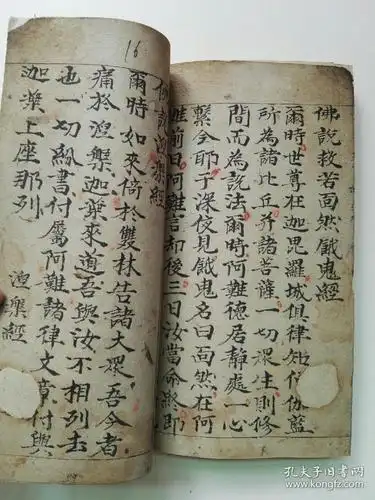 佛説救苦面然餓鬼經
爾時世尊在迦毘羅城俱律
所為諸比丘并諸菩薩一切眾生則修
間而為説法爾時阿難德居靜處一心
繫全即于深夜見餓鬼名曰面然在阿
難前曰阿難言却後三日汝當命終即
佛説涅槃經
爾時如來倚於雙林告諸大眾吾今者
痛於涅槃迦葉來道吾與汝不相列去
也一切經書付屬阿難諸律文章付與
迦葉上座那列
涅槃經
16
孔夫子旧书网
kongfz.com